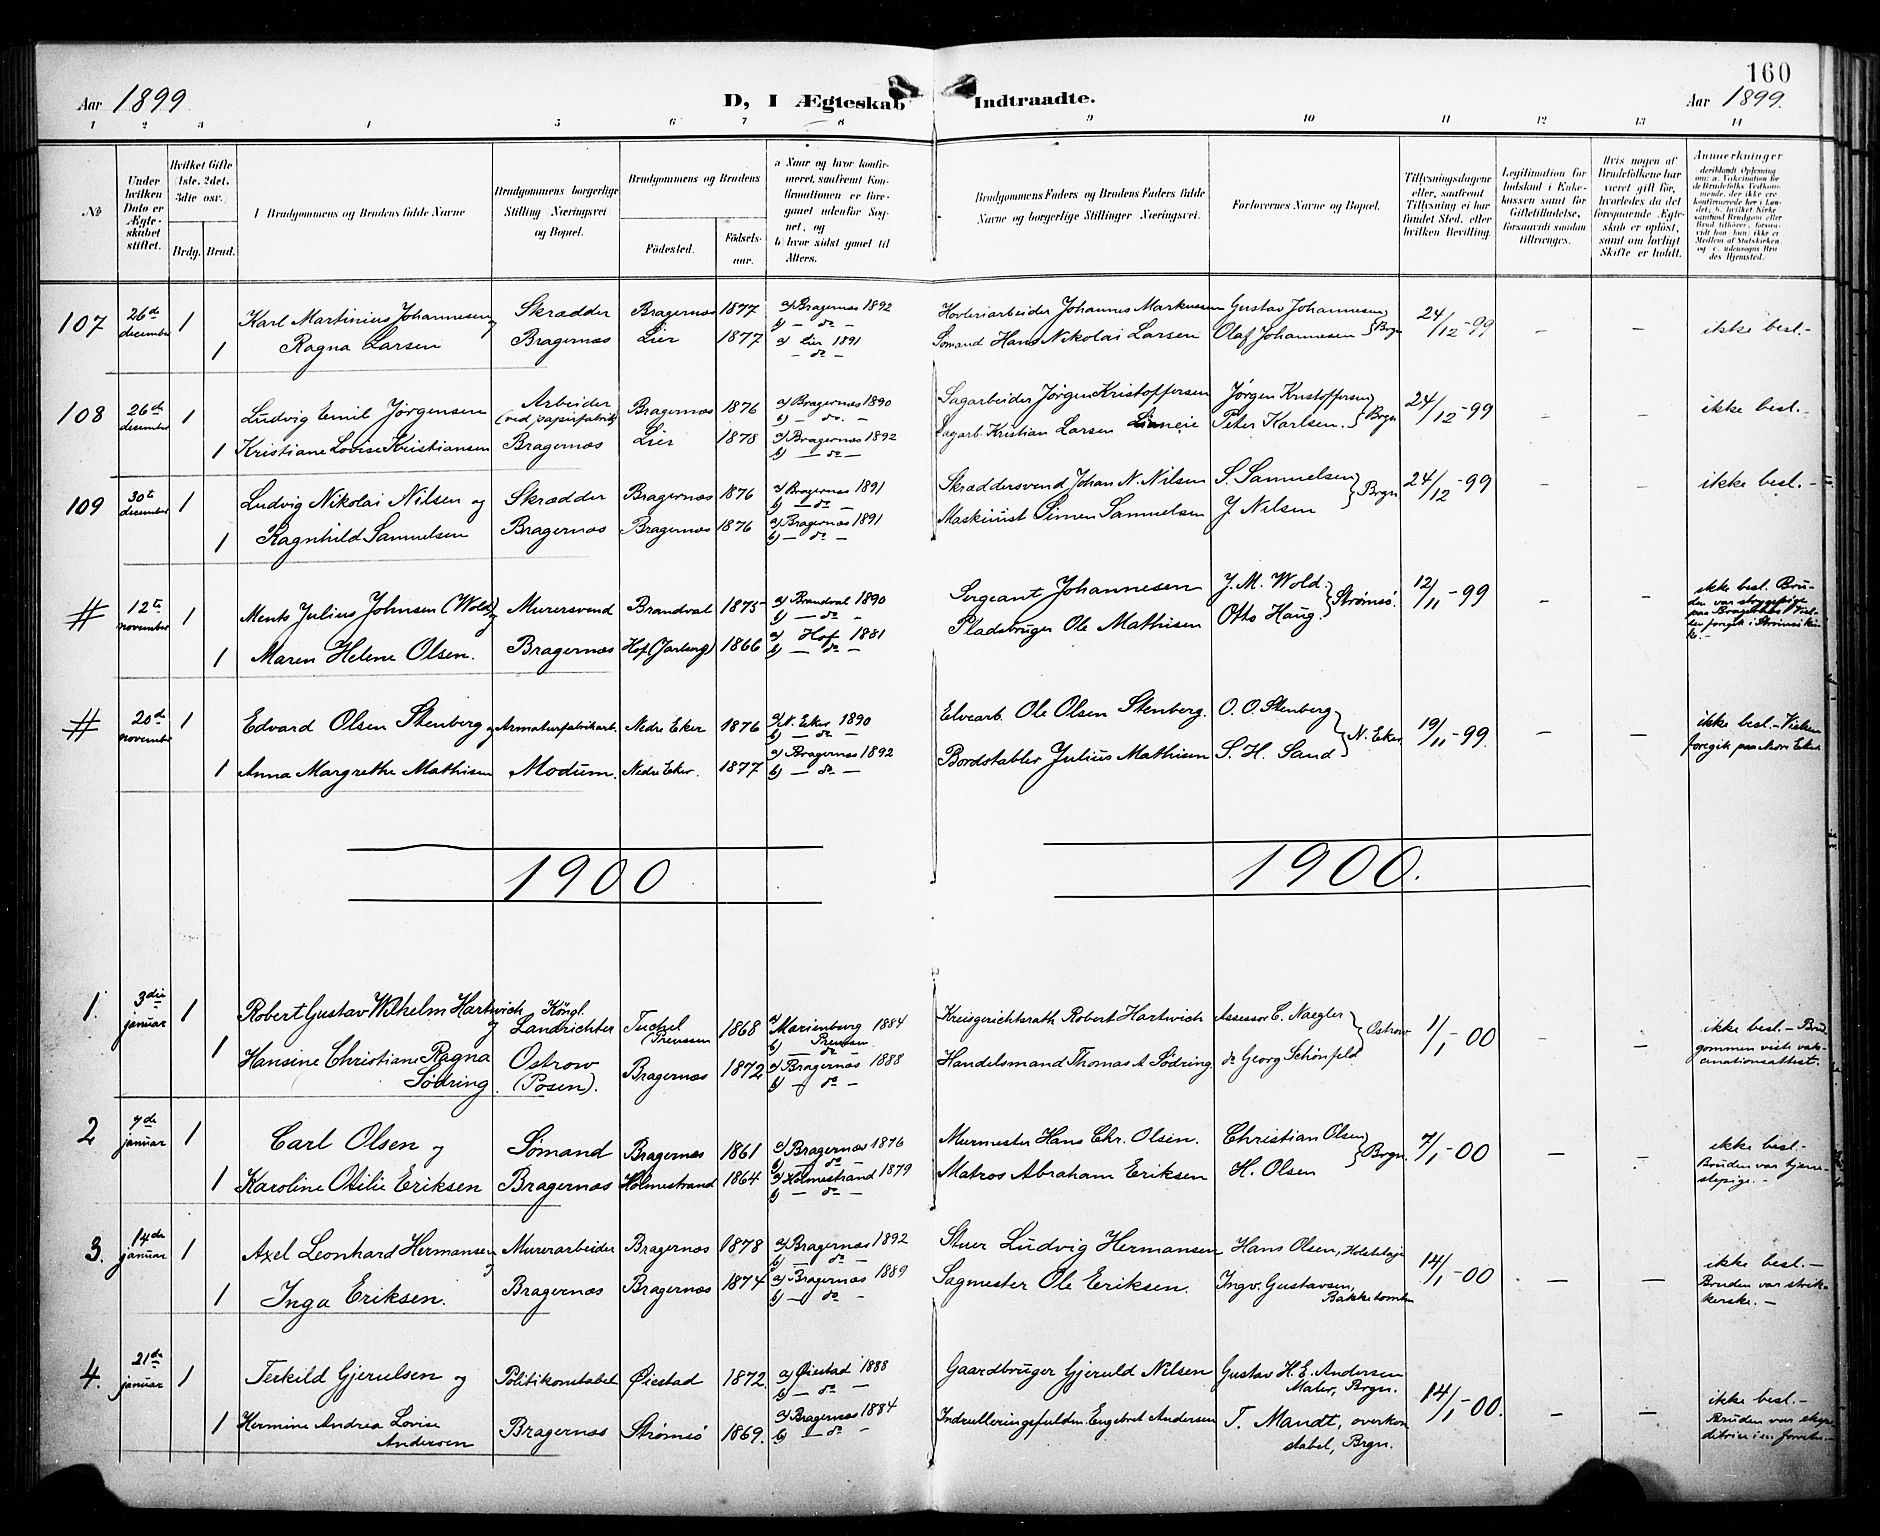 160
Aar 1899 D, I Ægteskab Indtraadte. Aar 1899.
1 2 3 4 5 6 7 8 9 10 11 12 13 14
№
Under hvilken Dato er Ægteskabet stiftet.
Hvilket Gifte (1ste, 2det, 3die osv.)
Brdg. Brud.
Brudgommens og Brudens fulde Navne
Brudgommens borgerlige Stilling Næringsvei og Bopæl.
Brudgommens og Brudens
Födested. Födselsaar.
a Naar og hvor konfirmeret, saafremt Konfirmationen er foregaaet udenfor Sognet, og
b hvor sidst gaaet til Alters.
Brudgommens Faders og Brudens Faders fulde Navne og borgerlige Stillinger Næringsvei.
Forlovernes Navne og Bopæl.
Tillysningsdagene eller, saafremt Tillysning ei har fundet Sted, efter hvilken Bevilling.
Legitimation for Indskud i Enkekassen samt for Giftetilladelse, forsaavidt saadan tiltrænges.
Hvis nogen af Brudefolkene har været gift för, hvorledes da det foregaaende Ægteskab er oplöst, samt om lovligt Skifte er holdt.
Anmærkninger
107 26de december 1 Karl Martinius Johannesen og Skrædder Bragernæs 1877 a) Bragernæs 1892 b) — do — Hovleriarbeider Johannes Markussen Gustav Johannesen } Brgn 24/12 - 99 — — ikke besl. —
1 Ragna Larsen Bragernæs Lier 1877 a) Lier 1891 — do — Sömand Hans Nikolai Larsen Olaf Johannesen
108 26de december 1 Ludvig Emil Jørgensen Arbeider (ved papirfabrik) Bragernæs 1876 a) Bragernæs 1890 b) — do. — Sagarbeider Jørgen Kristoffersen Jørgen Kristoffersen } Brgn 24/12 - 99 — — ikke besl. —
1 Kristiane Lovise Kristiansen Bragernæs Lier 1878 a) Bragernæs 1892 b) — do — Sagarb. Kristian Larsen Peter Karlsen.
109 30te december 1 Ludvig Nikolai Nilsen og Skrædder Bragernæs 1876 a) Bragernæs 1891 b) — do — Skræddersvend Johan N. Nilsen S. Samuelsen } Brgn 24/12 - 99 — — ikke besl. —
1 Ragnhild Samuelsen Bragernæs Bragernæs 1876 a) Bragernæs 1891 b) — do — Maskinist Simen Samuelsen J. Nilsen
# 12te november 1 Ments Julius Johnsen (Wold) og Murersvend Brandval 1875 a) Brandval 1890 b) — do — Sergeant Johannesen J. M. Wold. } Strømsö. 12/11 - 99 — — ikke besl. Bruden var
1 Maren Helene Olsen. Bragernæs Hof (Jarlsbg) 1866 a) Hof 1881 b) — do — Pladsbruger Ole Mathisen Otto Haug.
# 20de november 1 Edvard Olsen Stenberg og Armaturfabrikarb. Nedre Eker 1876 a) N. Eker 1890 b) — do — Elvearb. Ole Olsen Stenberg. O. O. Stenberg } N. Eker 19/11 - 99. — — ikke besl. — Vielsen foregik paa Nedre Eker
1 Anna Margrethe Mathisen Modum. Nedre Eker. 1877 a) Bragernæs 1892 b) — do — Bordstabler Julius Mathisen S. H. Sand
1900 1900.
1. 3die januar 1 Robert Gustav Wilhelm Hartwich og Köngl. Landrichter Tuchel Preussen 1868 a) Marienburg 1884 Preussen b) — do — Kreisgerichtsrath Robert Hartwich Assessor C. Naegler } Ostrow 1/1 - 00 — — ikke besl. — Brudgommen viste vakcinationsattest.
1 Hansine Christiane Ragna Södring Ostrow (Posen). Bragernæs 1872 a) Bragernæs 1888 b) — do — Handelsmand Thomas A Södring. do Georg Schönfeld
2 7de januar 1 Carl Olsen og Sømand Bragernæs 1861 a) Bragernæs 1876 b) — do — Murmester Hans Chr. Olsen. Christian Olsen } Brgn. 7/1 - 00 — — ikke besl. — Bruden var tjenestepige. —
1 Karoline Otilie Eriksen Bragernæs Holmestrand 1864 a) Holmestrand 1879 b) — do — Matros Abraham Eriksen H. Olsen
3. 14de januar 1 Axel Leonhard Hermansen og Murerarbeider Bragernæs 1878 a) Bragernæs 1892 b) — do — Stuer Ludvig Hermansen Hans Olsen, 14/1 - 00 — — ikke besl. — Bruden var strikkerske. —
1 Inga Eriksen. Bragernæs Bragernæs 1874 a) Bragernæs 1889 b) — do — Sagmester Ole Eriksen. Ingv. Gustavsen,
4. 21de januar 1 Terkild Gjerulsen og Politikonstabel Øiestad 1872. a) Øiestad 1888 b) — do — Gaardbruger Gjeruld Nilsen Gustav H. E. Andersen Maler, Brgn. 14/1 - 00. — — ikke besl. —
1 Hermine Andrea Lovise Andersen Bragernæs Strømsö 1869. a) Bragernæs 1884 b) — do — Indrulleringsfuldm. Engebret Andersen T. Mandt, overkonstabel, Brgn.